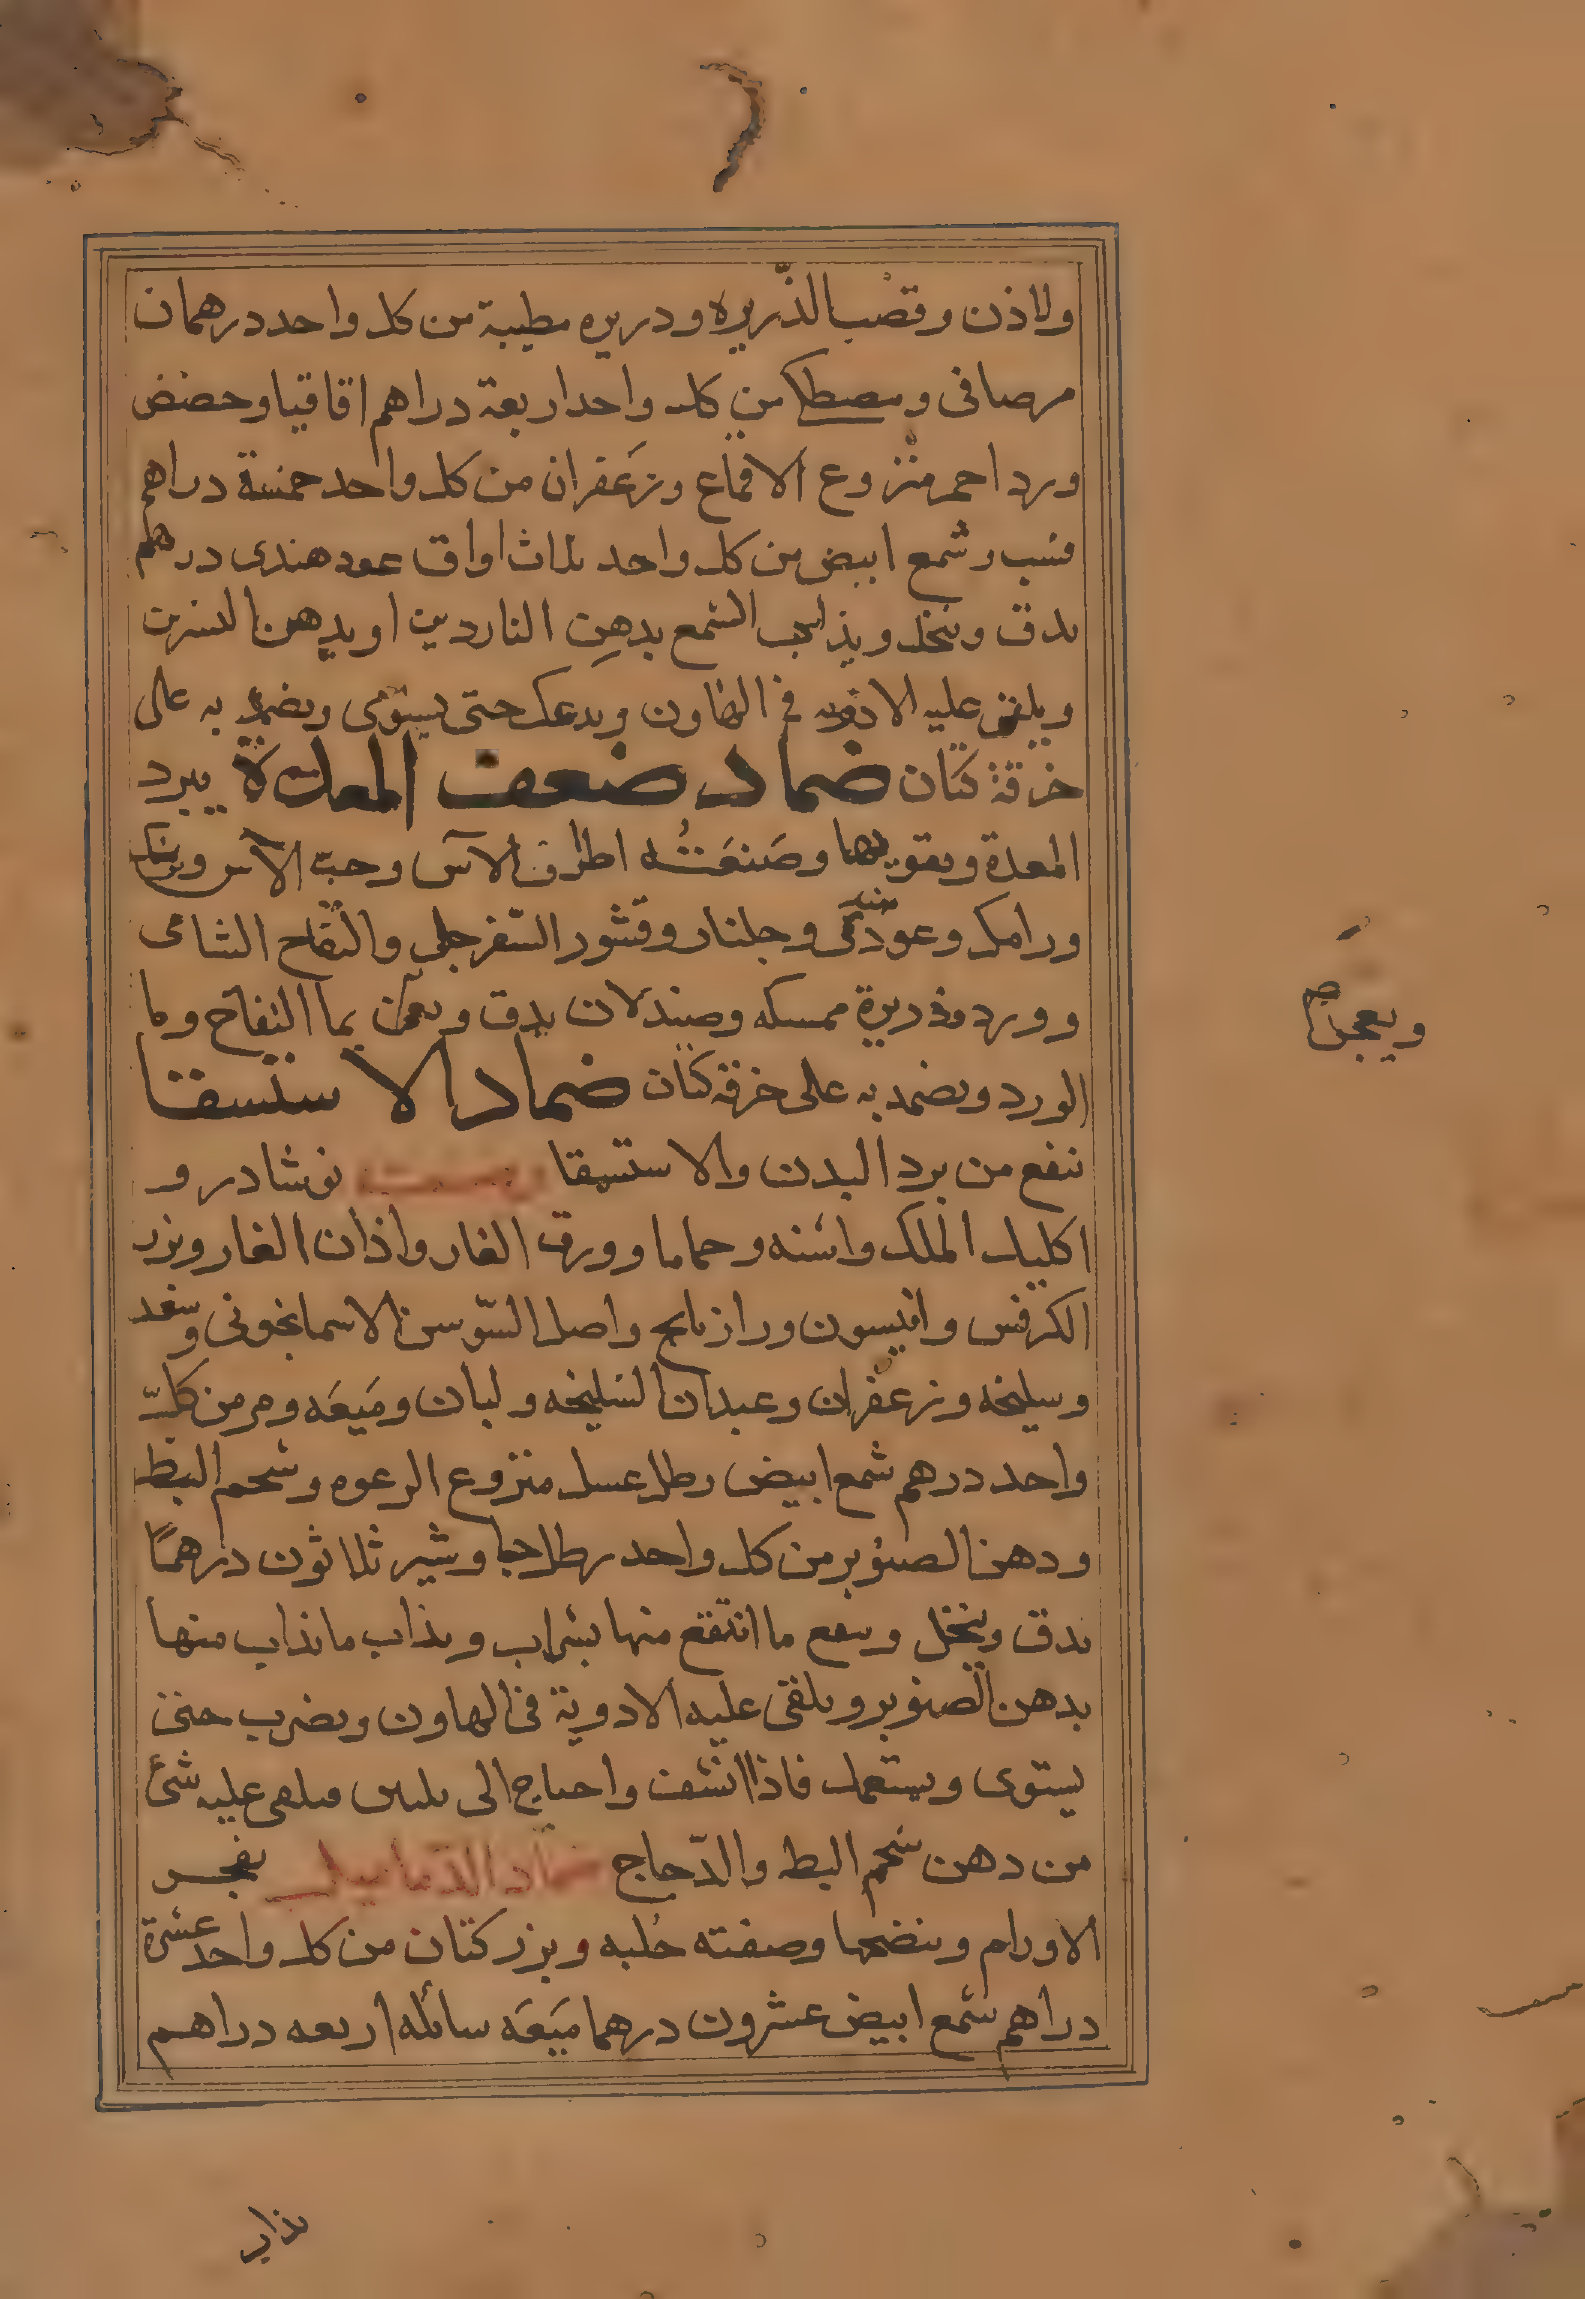 ولاذن وقصب الذّريره ودريره مطيبة من كل واحد درهمان
مرصافى ومصطكا من كل واحد اربعة دراهم اقاقيا وحضض
ورد احمر منزوع الاقماع وزعفران من كل واحد خمسة دراهم
قسب وشمع ابيض من كل واحد ثلاث اواق عود هندى درهم
يدق وينخل ويذاب الشمع بدهن الناردين او بدهن النسرين
ويلقى عليه الادويه فى الهاون ويدعك حتى يستوى ويضمد به على
خرقة كتان ضماد ضعف المعدة يبرد
المعدة ويقويها وصنعته اطراف الآس وحب الآس وسك
ورامك وعود نى وجلنار وقشور السّفرجل والتفاح الشامى
وورد وذريرة ممسكه وصندلان يدق ويعجن بما التفاح وما
الورد ويضمد به على خرقة كتان ضماد الاستسقا
ينفع من برد البدن والاستسقا نوشادر و
اكليل الملك واشنه وحماما وورق الغار واذان الفار وبزر
الكرفس وانيسون ورازيانج واصل السّوسن الاسمانجونى وسعد
وسليخه وزعفران وعيدان السليخه ولبان وميعَه ومر من كلّ
واحد درهم شمع ابيض رطل عسل منزوع الرعوه وشحم البط
ودهن الصنوبر من كل واحد رطل جاوشير ثلاثون درهمًا
يدق وينخل وينقع ما انتقع منها بشراب ويذاب ما يذاب منها
بدهن الصنوبر ويلقى عليه الادوية فى الهاون ويضرب حتى
يستوى ويستعمل فاذا انشف واحتاج الى تليين فيلقى عليه شئ
من دهن شحم البط والدّجاج ضماد الدّماميل يفجر
الاورام وينضجها وصفته حُلبه وبزر كتان من كل واحد عشرة
دراهم شمع ابيض عشرون درهما ميَعَه سائله اربعه دراهم
ويعجن صح
يذاب